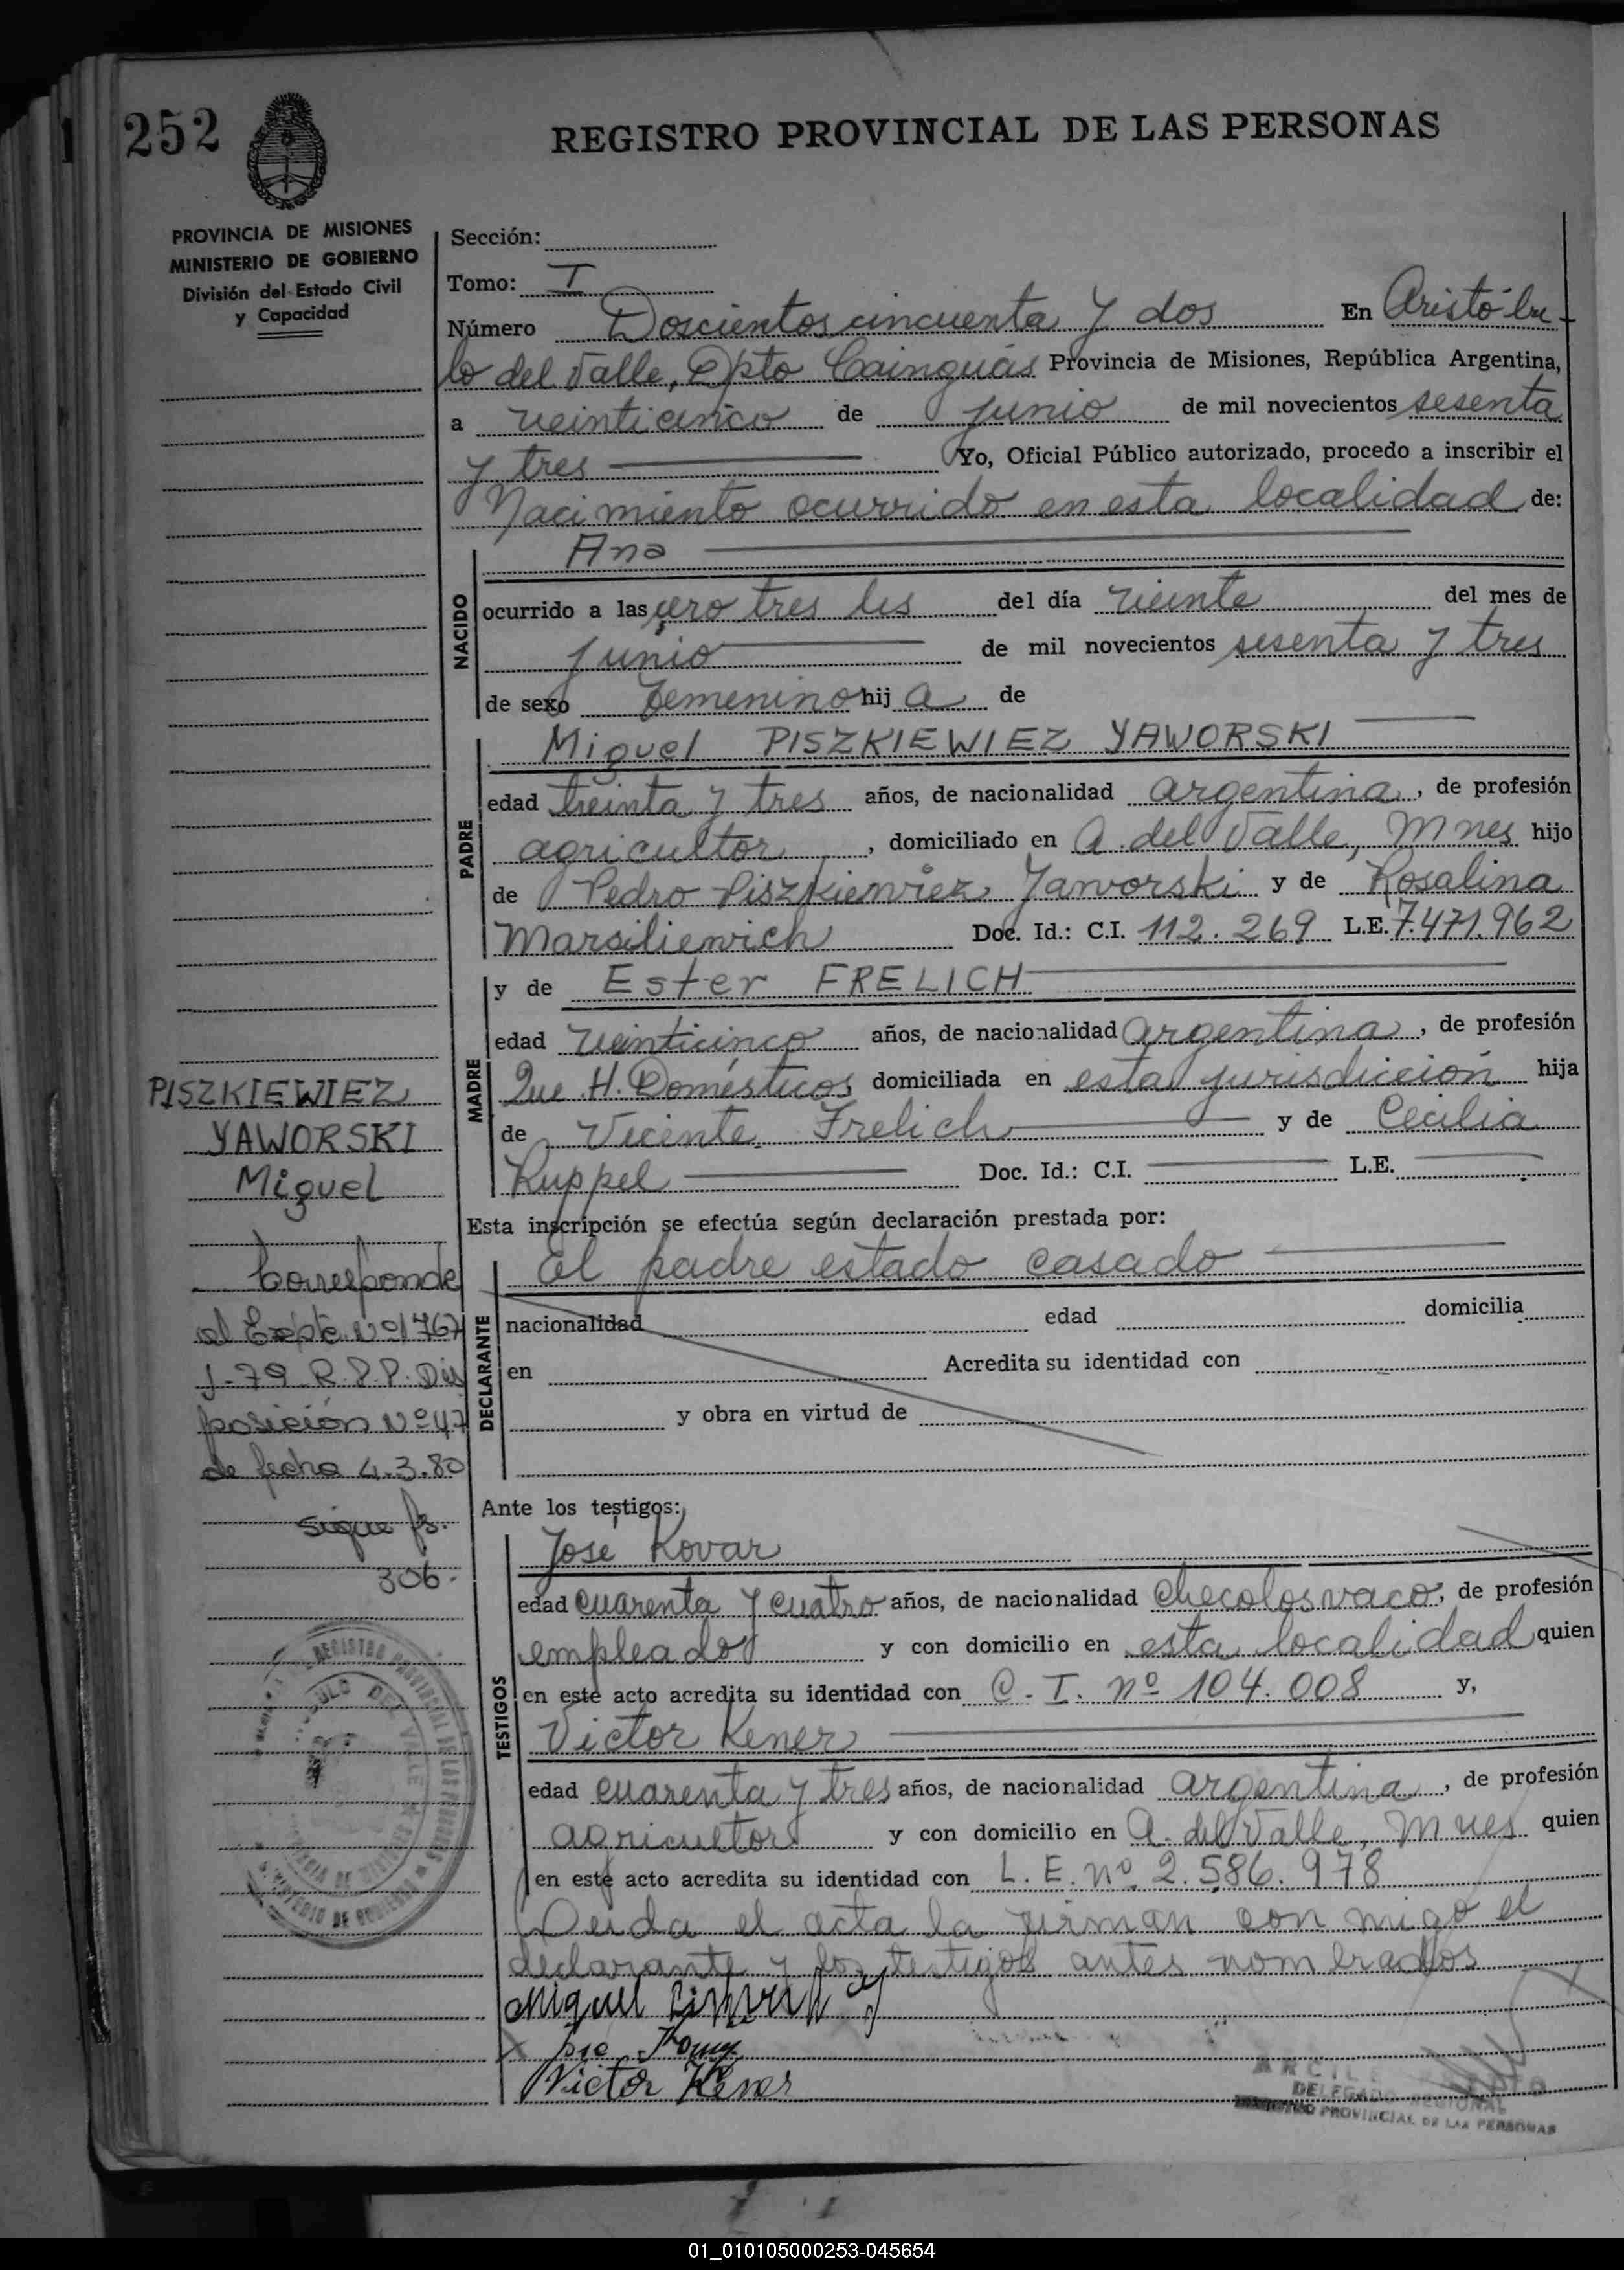 252
REGISTRO PROVINCIAL DE LAS PERSONAS
PROVINCIA DE MISIONES
MINISTERIO DE GOBIERNO
División del Estado Civil
y Capacidad
Sección:
Tomo: I
Número Doscientos cincuenta y dos En Aristóbu-
lo del Valle, Dpto Cainguás Provincia de Misiones, República Argentina,
a veinticinco de junio de mil novecientos sesenta
y tres Yo, Oficial Público autorizado, procedo a inscribir el
Nacimiento ocurrido en esta localidad de:
Ana
NACIDO
ocurrido a las cero tres hs del día veinte del mes de
junio de mil novecientos sesenta y tres
de sexo femenino hij a de
PADRE
Miguel PISZKIEWIEZ YAWORSKI
edad treinta y tres años, de nacionalidad argentina, de profesión
agricultor, domiciliado en A. del Valle, Mnes hijo
de Pedro Piszkiewiez Jaworski y de Rosalina
Marsiliewich Doc. Id.: C.I. 112.269 L.E. 7.471.962
MADRE
y de Ester FRELICH
edad veinticinco años, de nacionalidad argentina, de profesión
Que H. Domésticos domiciliada en esta jurisdicción hija
de Vicente Frelich y de Cecilia
Kuppel Doc. Id.: C.I. L.E.
PISZKIEWIEZ
YAWORSKI
Miguel
Corresponde
al Expte Nº 1767
J-79 R.P.P. Dis
posición Nº 47
de fecha 4.3.80
sigue fs.
306.
Esta inscripción se efectúa según declaración prestada por:
DECLARANTE
El padre estado casado
nacionalidad edad domicilia
en Acredita su identidad con
y obra en virtud de
Ante los testigos:
TESTIGOS
José Kovar
edad cuarenta y cuatro años, de nacionalidad checolosvaco, de profesión
empleado y con domicilio en esta localidad quien
en este acto acredita su identidad con C.I. nº 104.008 y,
Victor Kener
edad cuarenta y tres años, de nacionalidad argentina, de profesión
agricultor y con domicilio en A. del Valle, Mnes quien
en este acto acredita su identidad con L.E. nº 2.586.978
Leida el acta la firman con migo el
declarante y los testigos antes nombrados
Miguel
Victor Kener
DELEGADO REGIONAL
REGISTRO PROVINCIAL DE LAS PERSONAS
01_010105000253-045654